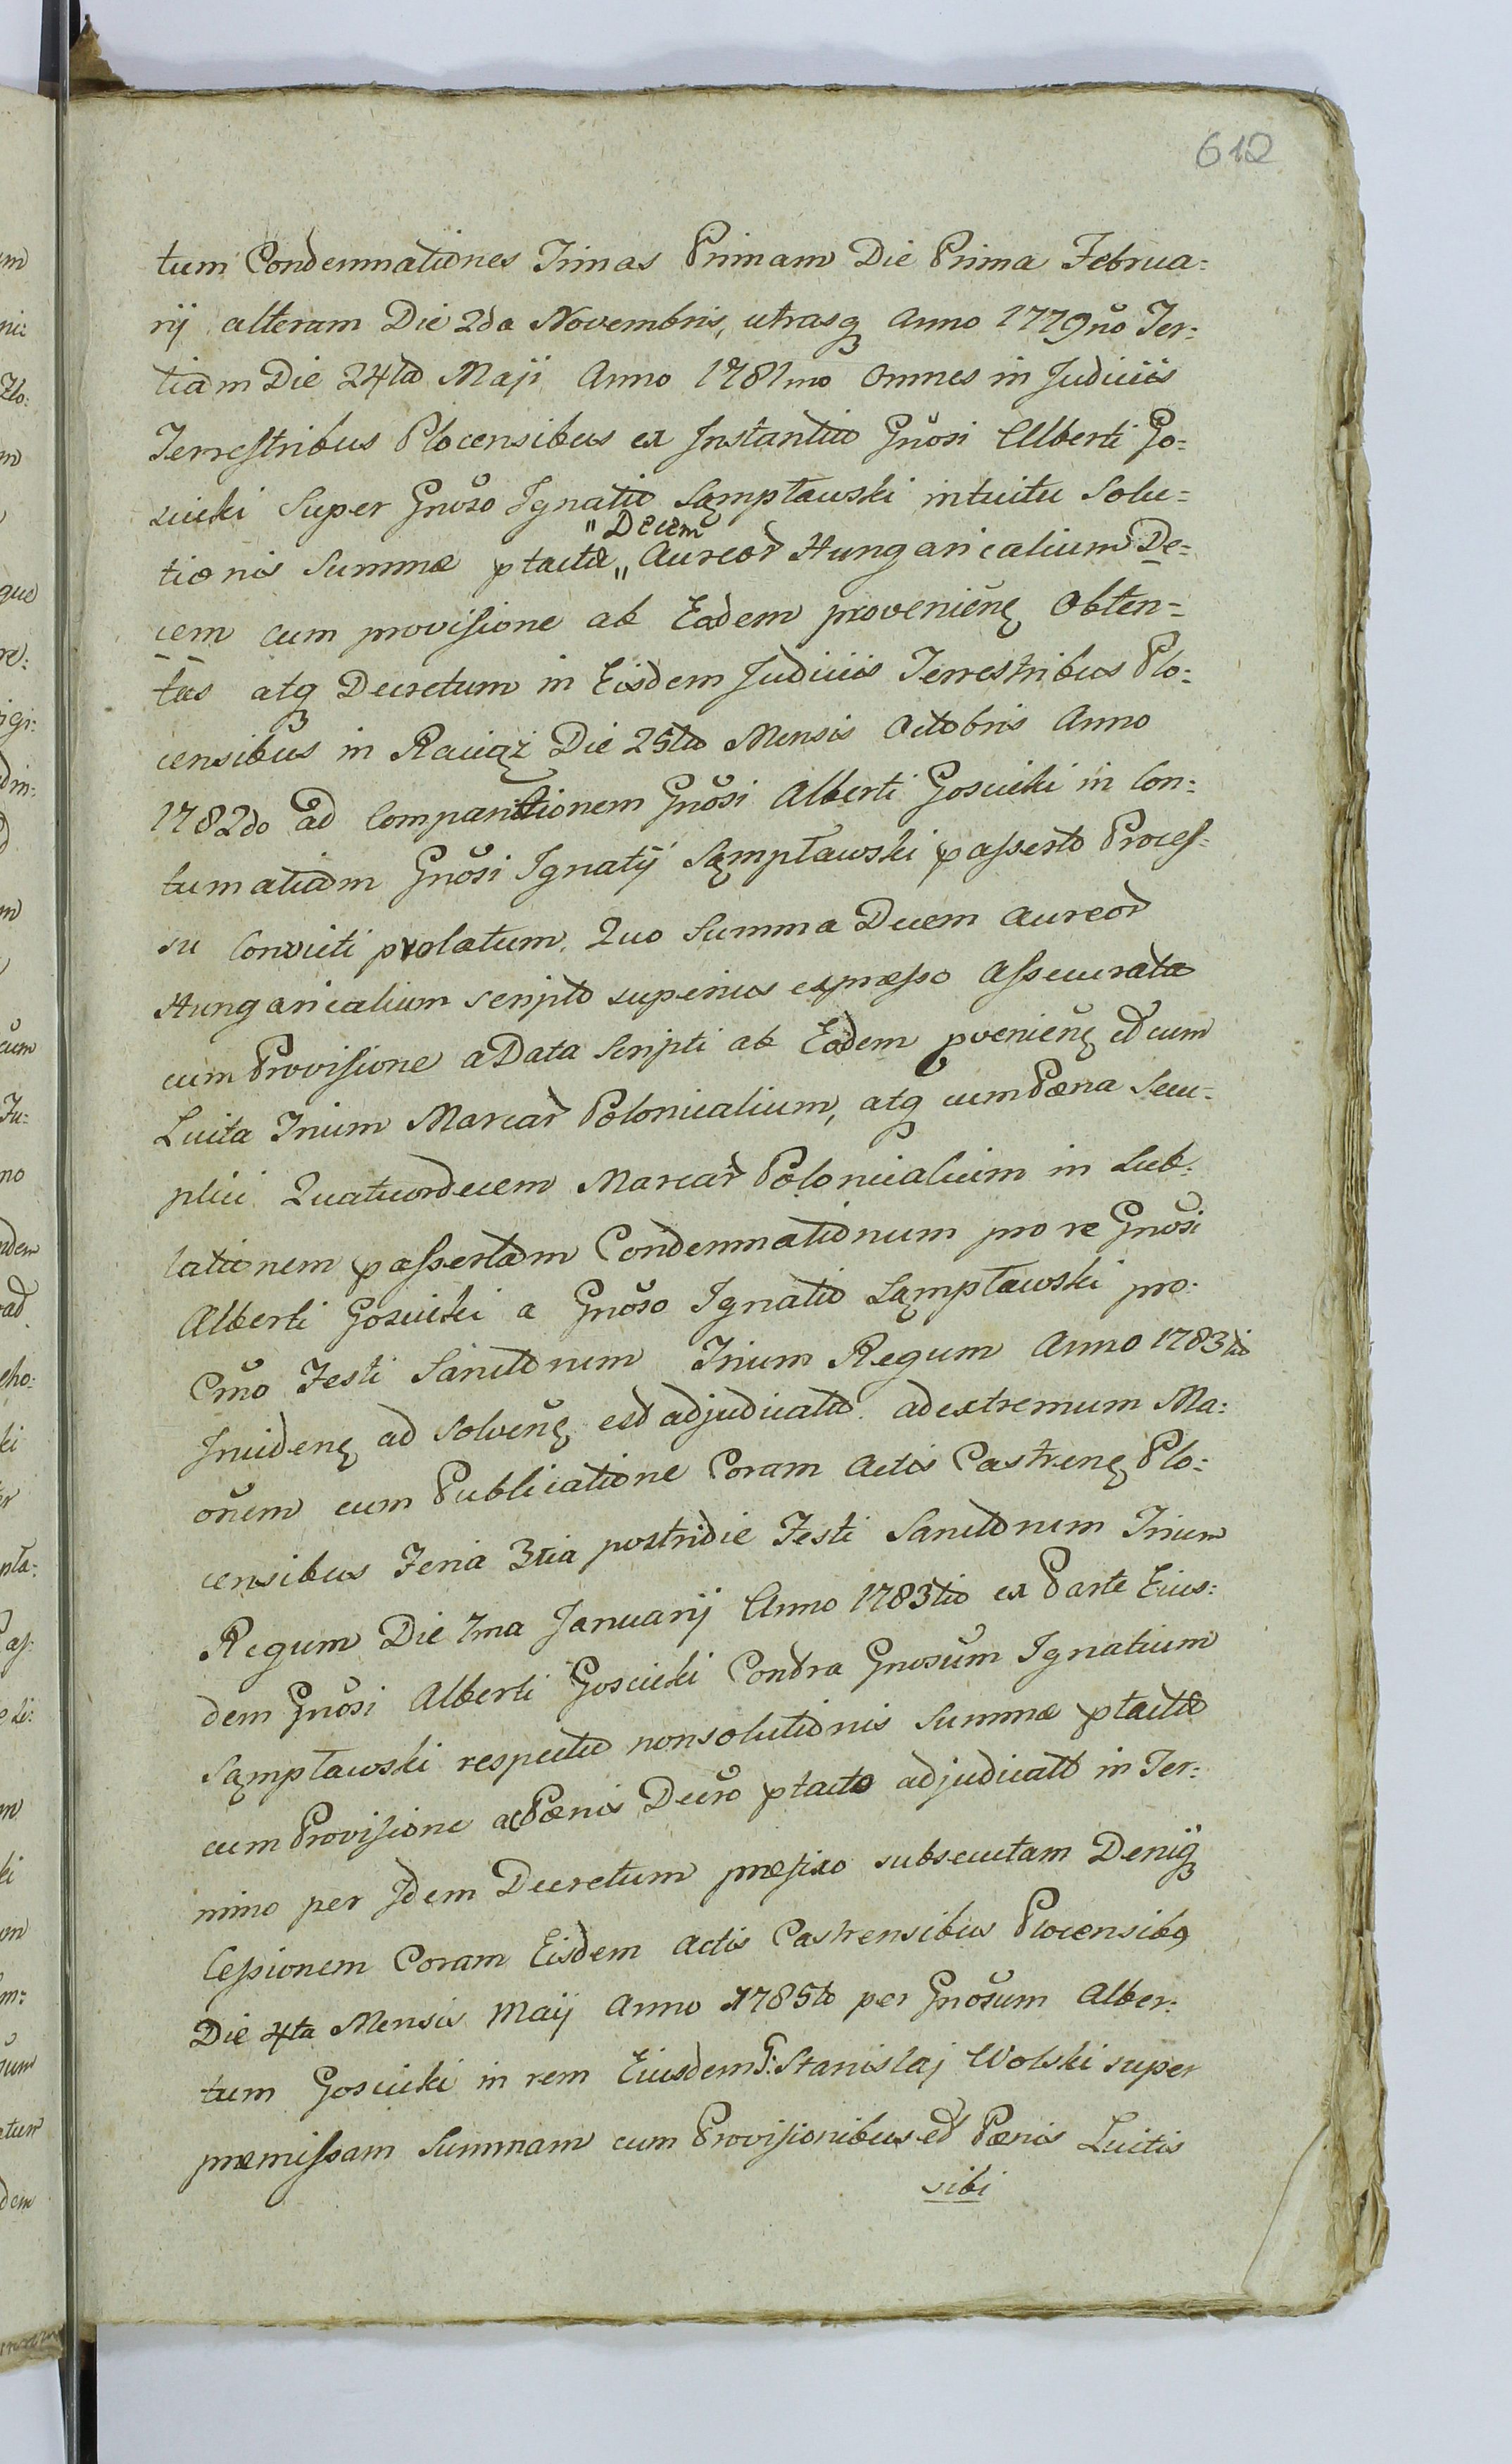 612
tum Condemnationes Trinas Primam Die Prima Februa=
rij alteram Die 2da Novembris, utrasq₃ Anno 1779no Ter:
tiam Die 24ta Maji Anno 1781mo Omnes in Judiciis
Terrestribus Plocensibus ex Instantia Gnosi Alberti Go=
scicki Super Gnoso Ignatio Sąmpławski intuitu Solu=
"Decem
tionis Summæ ptactæ „ Aureor Hungaricalium De=
cem cum provisione ab Eadem provenienę Obten=
tas atq₃ Decretum in Eisdem Judiciis Terrestribus Plo:
censibus in Raciąż Die 25ta Mensis Octobris Anno
1782do ad Comparitionem Gnosi Alberti Goscicki in Con:
tumatiam Gnosi Ignatij Sąmpławski passerto Proces:
su Convicti prolatum, Quo Summa Decem Aureor
Hungaricalium scripto superius expresso Assecurata
cum Provisione a Data Scripti ab Eadem pvenienę et cum
Luita Trium Marcar Polonicalium, atq₃ cum Pæna Secu=
plici Quatuordecem Marcar Polonicalium in Sub:
lationem passertam Condemnationum pro re Gnosi
Alberti Goscicki a Gnoso Ignatio Sąmpławski pro:
Cmo Festi Sanctorum Trium Regum Anno 1783tio
Incidenę ad Solvenę est adjudicata. ad extremum Ma:
onem cum Publicatione Coram Actis Castrenę Plo:
censibus Feria 3tia postridie Festi Sanctorum Trium
Regum Die 7ma Januarij Anno 1783tio ex Parte Eius:
dem Gnosi Alberti Goscicki Contra Gnosum Ignatium
Sąmpławski respectu nonsolutionis Summæ ptactæ
cum Provisione ac Pænis Decro ptacto adjudicatæ in Ter:
mino per Idem Decretum præfixo subsecutam Deniq₃
Cessionem Coram Eisdem Actis Castrensibus Plocensibq
Die 4ta Mensis Maij Anno 1785to per Gnosum Alber:
tum Goscicki in rem Eiusdem G: Stanislaj Wolski super
præmissam Summam cum Provisionibus et Pænis Luitis
sibi